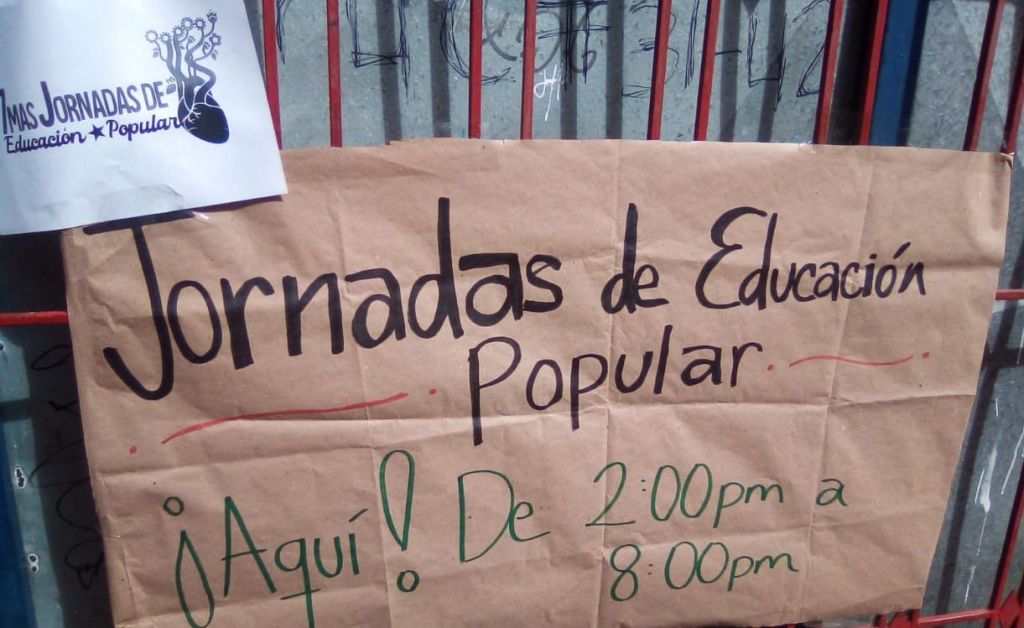 7MAS JORNADAS DE
Educación ★ Popular
Jornadas de Educación
Popular
¡Aquí! De 2:00pm a
8:00pm